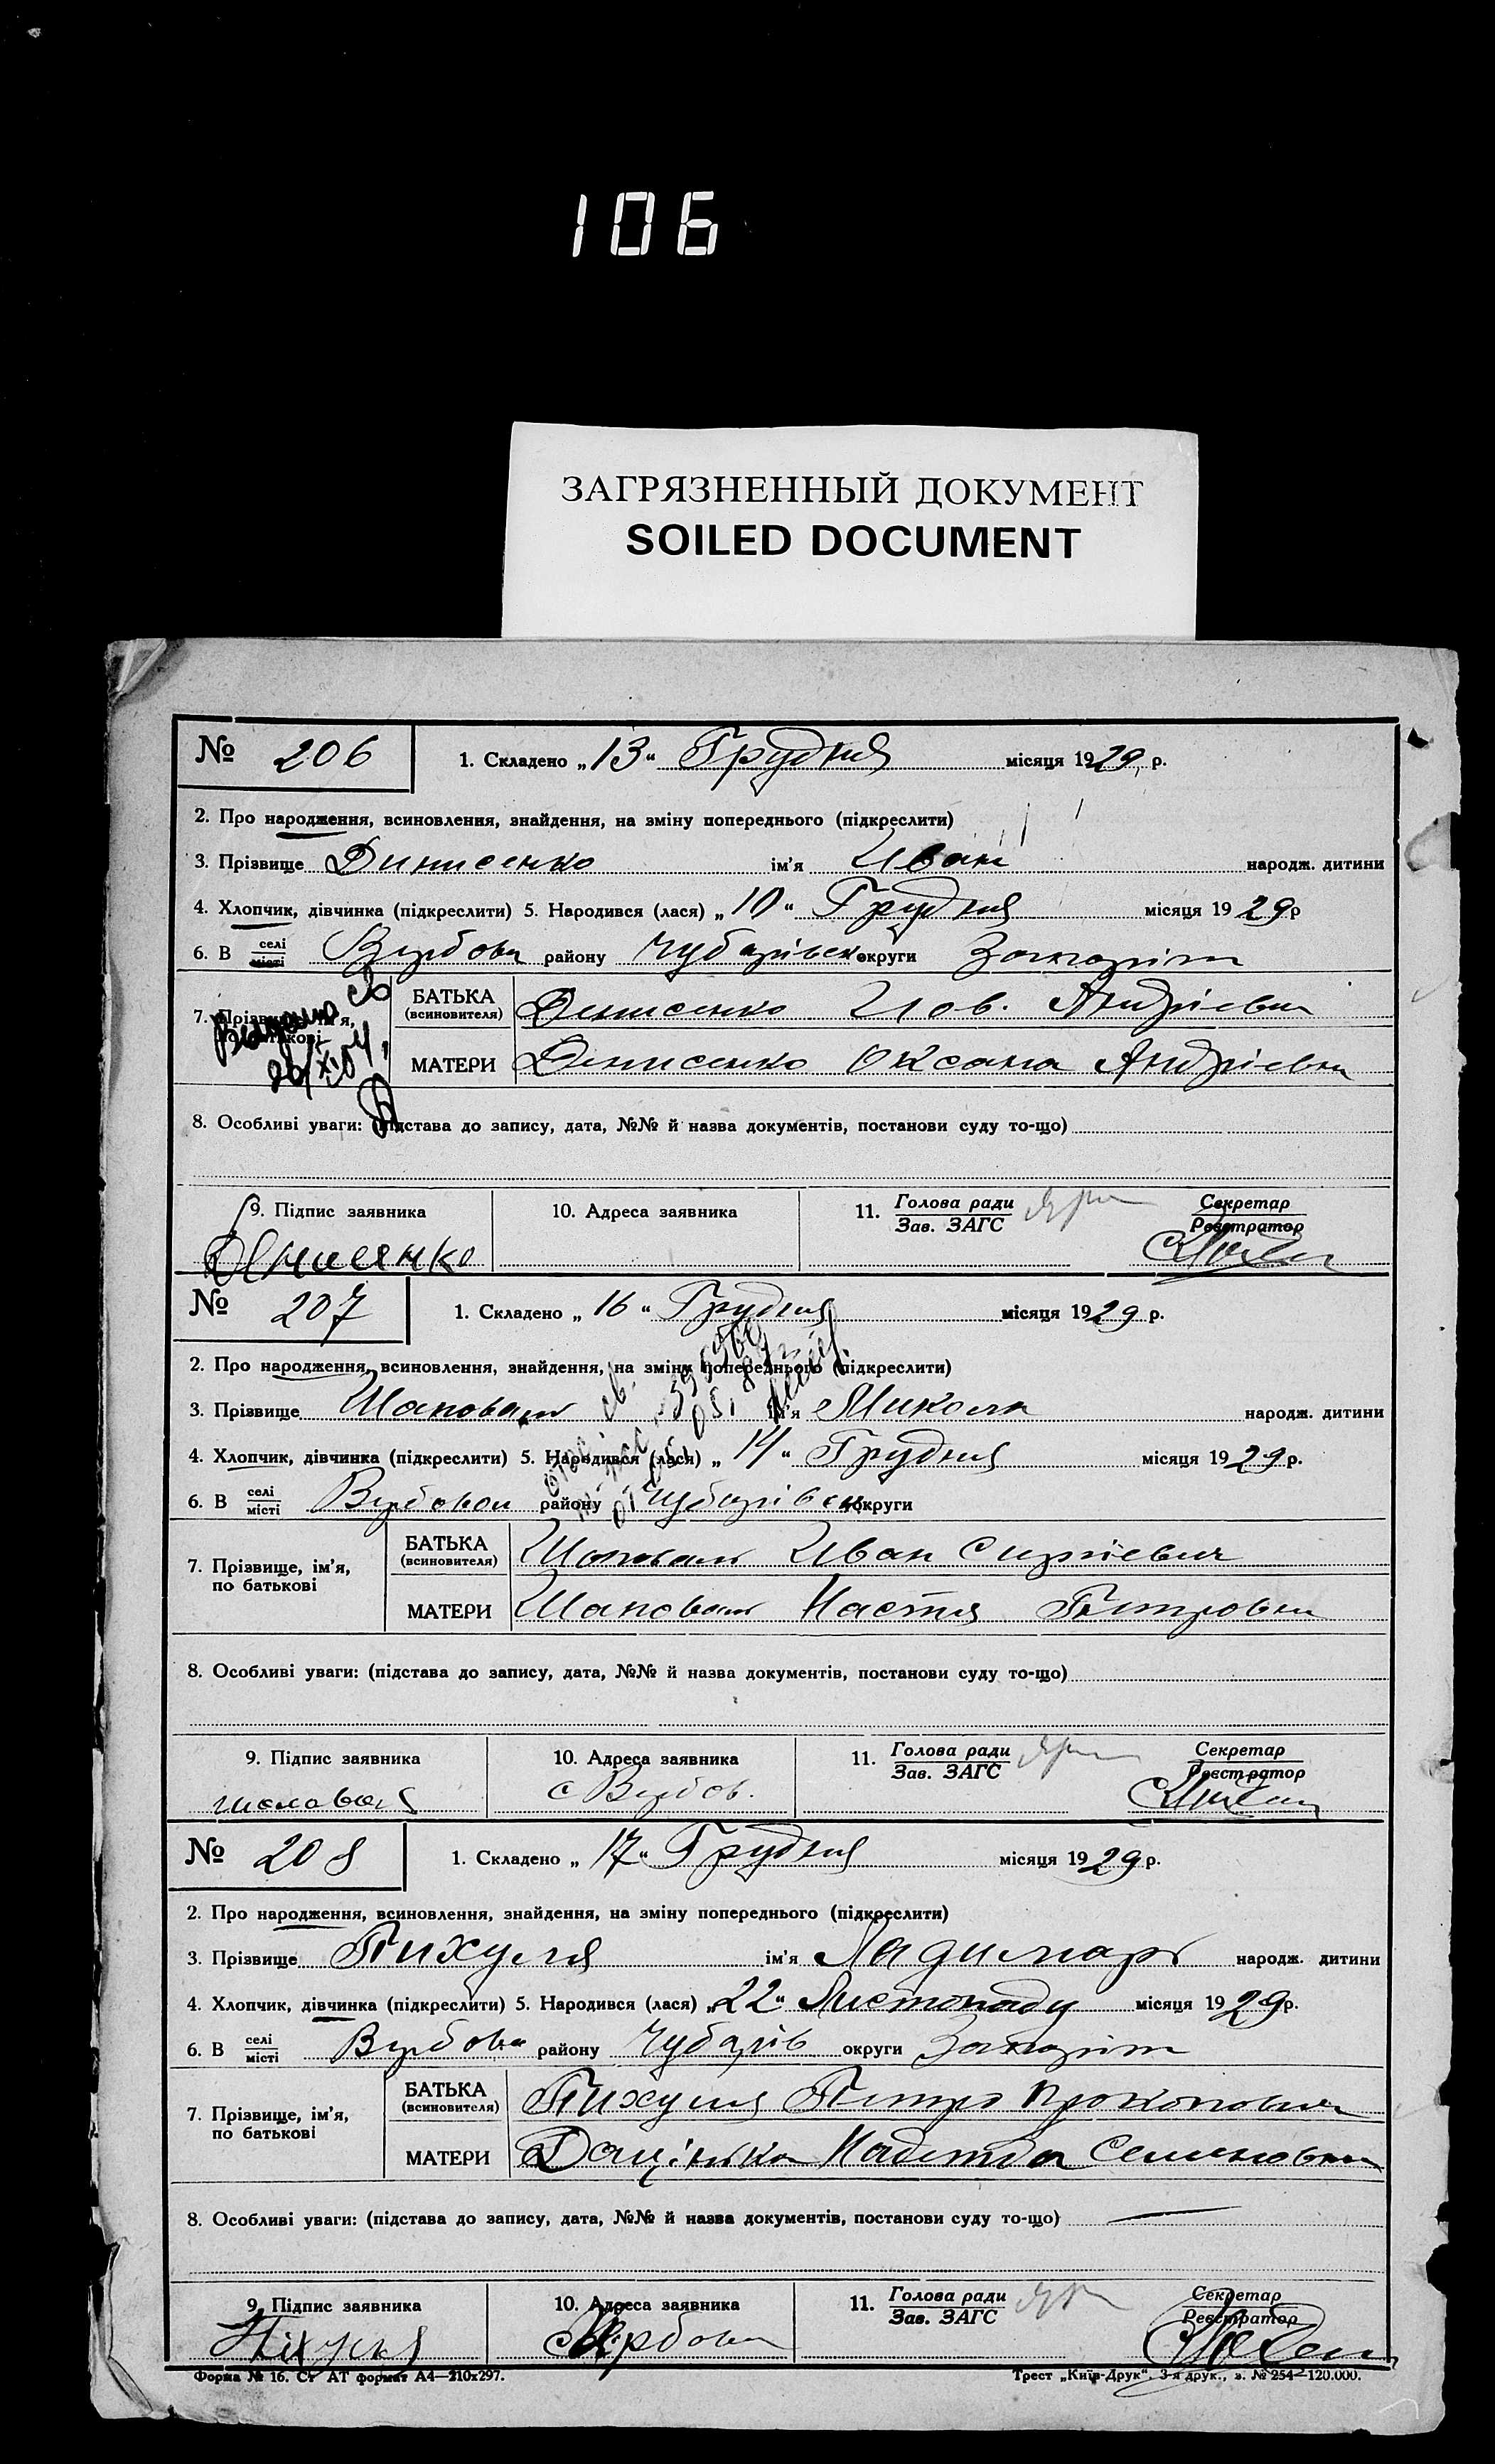 106
ЗАГРЯЗНЕННЫЙ ДОКУМЕНТ
SOILED DOCUMENT
№ 206 1. Складено „13“ Грудня місяця 1929 р.
2. Про народження, всиновлення, знайдення, на зміну попереднього (підкреслити)
3. Прізвище Динисенко ім'я Иван народж. дитини
4. Хлопчик, дівчинка (підкреслити) 5. Народився (лася) „10“ Грудня місяця 1929р
6. В селі місті Вербова району Чубарівск округи
7. Прізвище, ім'я, по батькові
Видано св
БАТЬКА (всиновителя) Денисенко Иов. Андріевич
МАТЕРИ Денисенко Оксана Андріевна
8. Особливі уваги: (підстава до запису, дата, №№ й назва документів, постанови суду то-що)
9. Підпис заявника 10. Адреса заявника 11. Голова ради Зав. ЗАГС Секретар Реєстратор
№ 207 1. Складено „16“ Грудня місяця 1929 р.
2. Про народження, всиновлення, знайдення, на зміну попереднього (підкреслити)
3. Прізвище Шаповал ім'я Микола народж. дитини
4. Хлопчик, дівчинка (підкреслити) 5. Народився (лася) „14“ Грудня місяця 1929р.
6. В селі місті Вербовои району Чубарівск округи
7. Прізвище, ім'я, по батькові
БАТЬКА (всиновителя) Шаповал Иван Сиргіевич
МАТЕРИ Шаповал Настя Петровна
8. Особливі уваги: (підстава до запису, дата, №№ й назва документів, постанови суду то-що)
9. Підпис заявника 10. Адреса заявника 11. Голова ради Зав. ЗАГС Секретар Реєстратор
с Вербов.
№ 208 1. Складено „17“ Грудня місяця 1929р.
2. Про народження, всиновлення, знайдення, на зміну попереднього (підкреслити)
3. Прізвище Пихуля ім'я народж. дитини
4. Хлопчик, дівчинка (підкреслити) 5. Народився (лася) „22“ Листопаду місяця 1929р.
6. В селі місті Вербова району Чубарів округи
7. Прізвище, ім'я, по батькові
БАТЬКА (всиновителя) Пихуля Петро Прокопович
МАТЕРИ Надежда Семеновна
8. Особливі уваги: (підстава до запису, дата, №№ й назва документів, постанови суду то-що)
9. Підпис заявника 10. Адреса заявника 11. Голова ради Зав. ЗАГС Секретар Реєстратор
Форма № 16. Ст АТ формат А4—210x297. Трест „Київ-Друк“. 3-я друк., з. № 254—120.000.